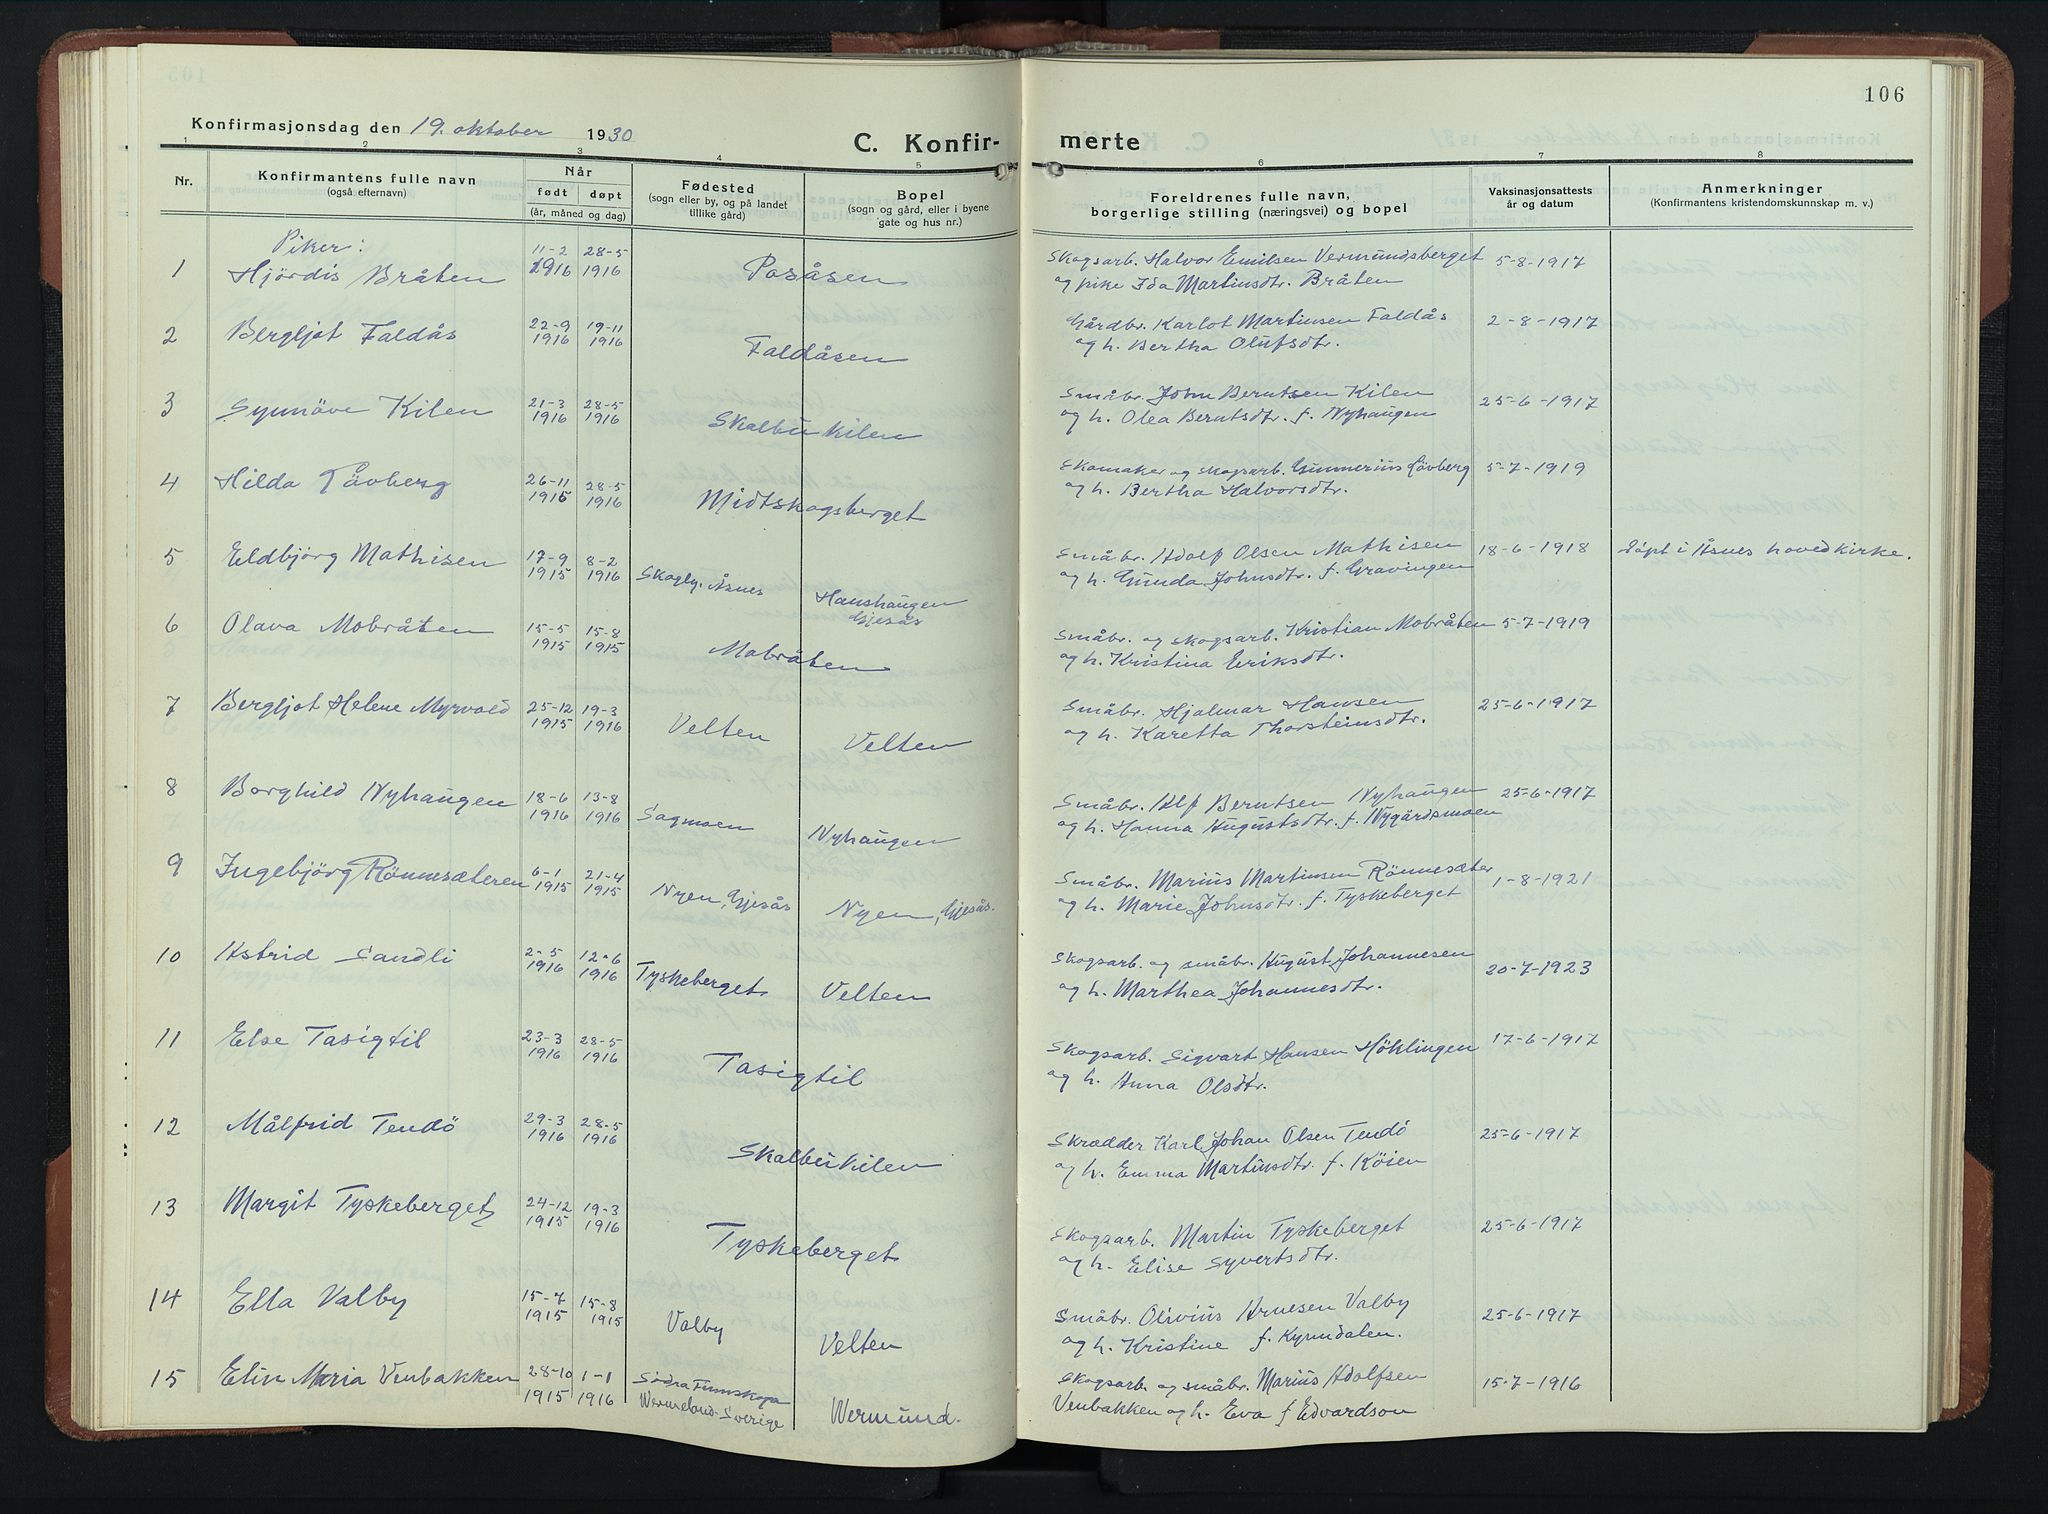 106
Konfirmasjonsdag den 19. oktober 1930
C. Konfir-
merte
1 2 3 4 5 6 7 8
Nr.
Konfirmantens fulle navn
(også efternavn)
Når
født døpt
(år, måned og dag)
Fødested
(sogn eller by, og på landet
tillike gård)
Bopel
(sogn og gård, eller i byene
gate og hus nr.)
Foreldrenes fulle navn,
borgerlige stilling (næringsvei) og bopel
Vaksinasjonsattests
år og datum
Anmerkninger
(Konfirmantens kristendomskunnskap m. v.)
Piker:
1 Hjördis Bråten 11-2 1916 28-5 1916 Posåsen Skogsarb. Halvor Emilsen Vermundsberget 5-8-1917
og pike Ida Martinsdtr. Bråten
2 Bergljot Faldås 22-9 1916 19-11 1916 Faldåsen Gårdbr. Karlot Martinsen Faldås 2-8-1917
og h. Bertha Olufsdtr.
3 Synnöve Kilen 21-3 1916 28-5 1916 Skalbukilen Småbr. John Berntsen Kilen 25-6-1917
og h. Olea Berntsdtr. f. Nyhaugen
4 Hilda Lövberg 26-11 1915 28-5 1916 Midtskogsberget Skomaker og skogsarb. Gunnerius Lövberg 5-7-1919
og h. Bertha Halvorsdtr.
5 Eldbjörg Mathisen 17-9 1915 8-2 1916 Skogly, Åsnes Hanshaugen Gjesås Småbr. Adolf Olsen Mathisen 18-6-1918 Döpt i Åsnes hovedkirke.
og h. Gunda Johnsdtr. f. Gravingen
6 Olava Mobråten 15-5 1915 15-8 1915 Mobråten Småbr. og skogsarb. Kristian Mobråten 5-7-1919
og h. Kristina Eriksdtr.
7 Bergljot Helene Myrvold 25-12 1915 19-3 1916 Velten Velten Småbr. Hjalmar Hansen 25-6-1917
og h. Karetta Thorsteinsdtr.
8 Borghild Nyhaugen 18-6 1916 13-8 1916 Sagmoen Nyhaugen Småbr. Alf Berntsen Nyhaugen 25-6-1917
og h. Hanna Augustsdtr. f. Nygårdsmoen
9 Ingebjörg Rönnesæteren 6-1 1915 21-4 1915 Nyen, Gjesås Nyen, Gjesås. Småbr. Marius Martinsen Rönnesæter 1-8-1921
og h. Marie Johnsdtr. f. Tyskeberget
10 Astrid Sandli 2-5 1916 12-6 1916 Tyskeberget Velten Skogsarb. og småbr. August Johannesen 20-7-1923
og h. Marthea Johannesdtr.
11 Else Tasigtil 23-3 1916 28-5 1916 Tasigtil Skogsarb. Sigvart Hansen Höklingen 17-6-1917
og h. Anna Olsdtr.
12 Målfrid Tendö 29-3 1916 28-5 1916 Skalbukilen Skrædder Karl Johan Olsen Tendö 25-6-1917
og h. Emma Martinsdtr. f. Köien
13 Margit Tyskeberget 24-12 1915 19-3 1916 Tyskeberget Skogsarb. Martin Tyskeberget 25-6-1917
og h. Elise Syvertsdtr.
14 Ella Valby 15-7 1915 15-8 1915 Valby Velten Småbr. Olivius Arnesen Valby 25-6-1917
og h. Kristine f. Kynndalen.
15 Elin Maria Venbakken 28-10 1915 1-1 1916 Södra Finnskoga Wermeland-Sverige Wermund. Skogsarb. og småbr. Marius Adolfsen 15-7-1916
Venbakken og h. Eva f Edvardson